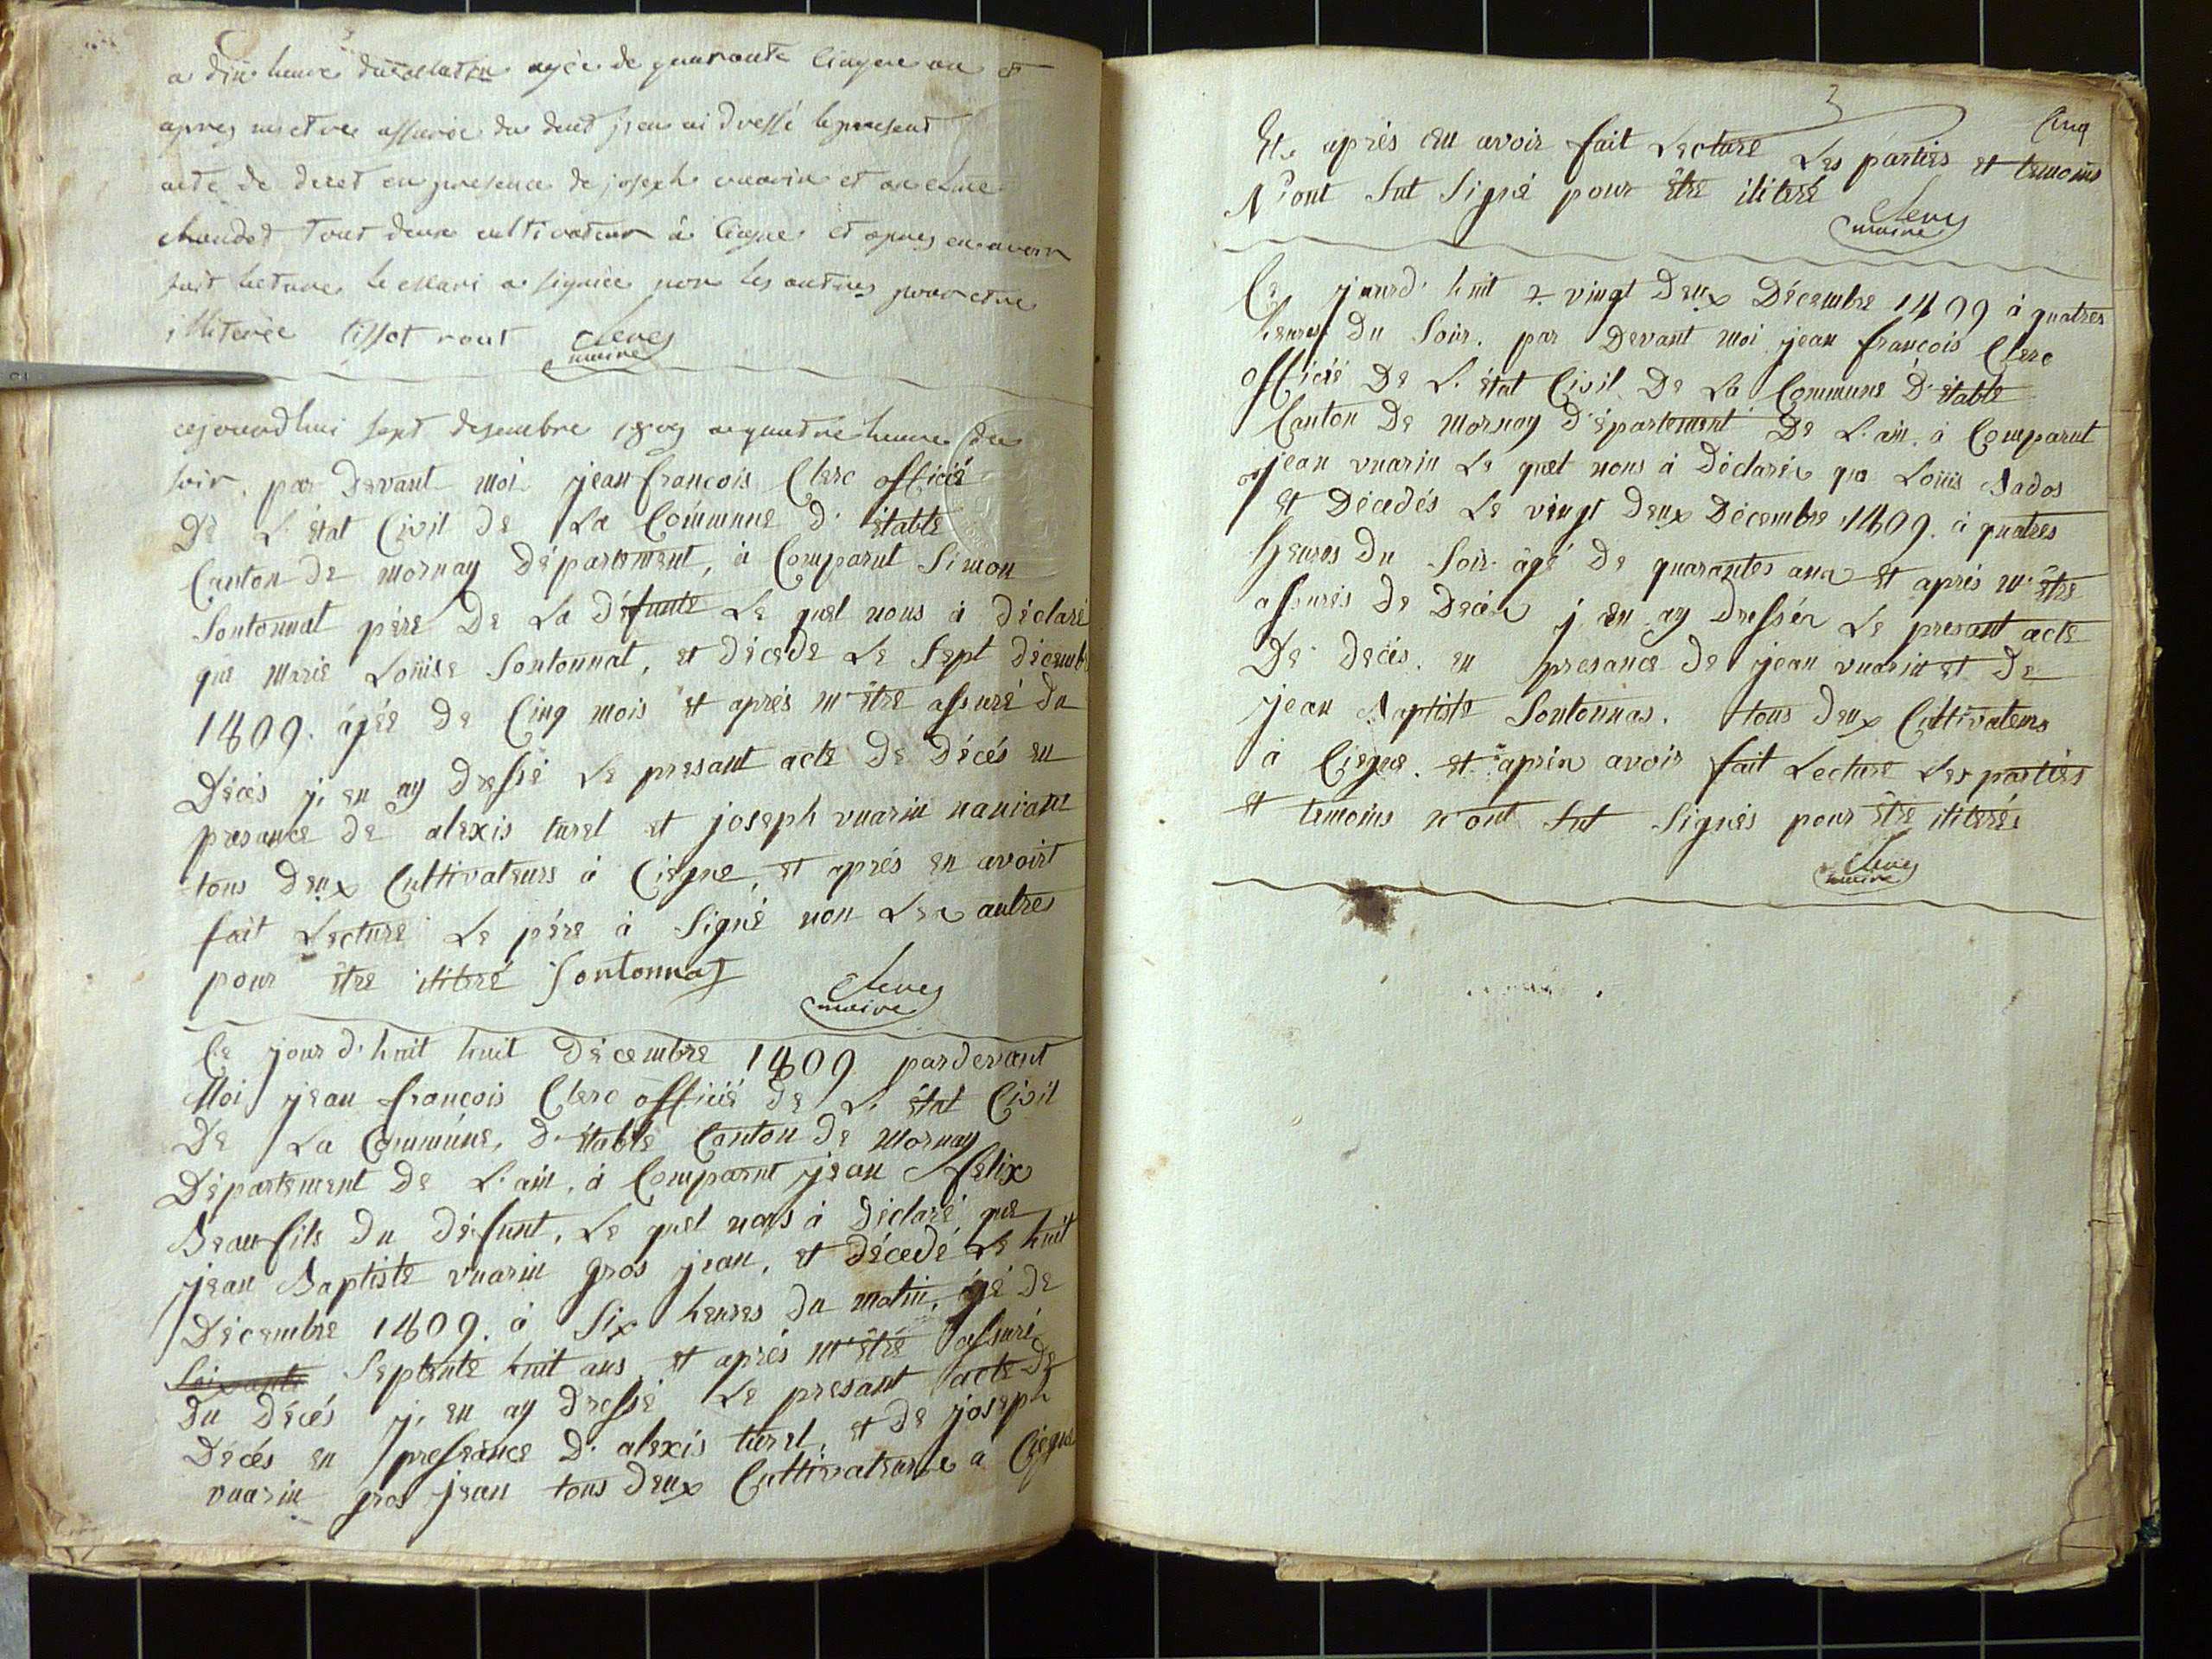 a dix heure du matin agée de quarante cinque an et
apres mectre assurée du deced jeen ai dressé le present
acte de deced en presence de joseph vuarin et anthelme
chaudet tout deux cultivateur a Ciegne et apres en avoir
fait lecture le Mari a signiée non les autres pour etre
illiterée tissot rout Clerc
maire
cejourdhui sept desembre 1809 a quatre heure du
soir. par Devant moi jean françois Clerc officié
De L'état Civil de La Commune d'étable
Canton de mornay Département, à Comparut Simon
Sontonnat père De La défunte Le quel nous à déclaré
que Marie Louise Sontonnat, et décede Le Sept décemb
1809. ájée de Cinq mois et aprés m'être assuré du
Décés j'en ay dressé Le presant acte De Décés en
presance de alexis turel et joseph vuarin
tous deux Cultivateurs à Ciegne, et aprés en avoirt
fait Lecture Le pére à Signé non Les autres
pour être ilitéré Sontonnat
Clerc
maire
Ce jour d'huit huit Décembre 1809 pardevant
Moi jean françois Clerc officié de L'état Civil
De La Commúne, d'étable Canton de Mornay
Département De L'ain, à Comparut jean felix
Beaufils Du défunt, Le quel nous à déclaré que
jean Baptiste vuarin gros jean, et décedé Le huit
Décembre 1809. à Six heures du matin, ágé de
Soixante Septente huit ans, et aprés m'être assuré
Du Décés j'en ay dressé Le presant acte De
Décés en presseance D'alexis turel, et De joseph
vuarin gros jean tous deux Cultivateurs a Ciegne
Cinq
Et aprés en avoir fait Lecture Les parties et temoins
N'ont Sut Signé pour être ilitéré
Clerc
maire
Ce jourd'huit vingt Deux Décembre 1809 à quatres
heures Du Soir. par Devant moi jean françois Clerc
officié De L'état Civil De La Commune D'étable
Canton De Mornay Département De L'ain. à Comparut
jean vuarin Le quel nous à Déclarée que Loüis Bados
et Décedés Le vingt deux Décembre 1809. à quatres
heures Du Soir âgé De quarantes ans et aprés m'être
assurés De Decés j'en ay Dressés Le presant acte
De Decés. en presance de jean vuarin et De
jean Baptiste Sontonnas. tous deux Cultivateurs
à Ciegne. et aprés avoir fait Lecture Les parties
et temoins n'ont Sut Signés pour être ilitérés
Clerc
maire